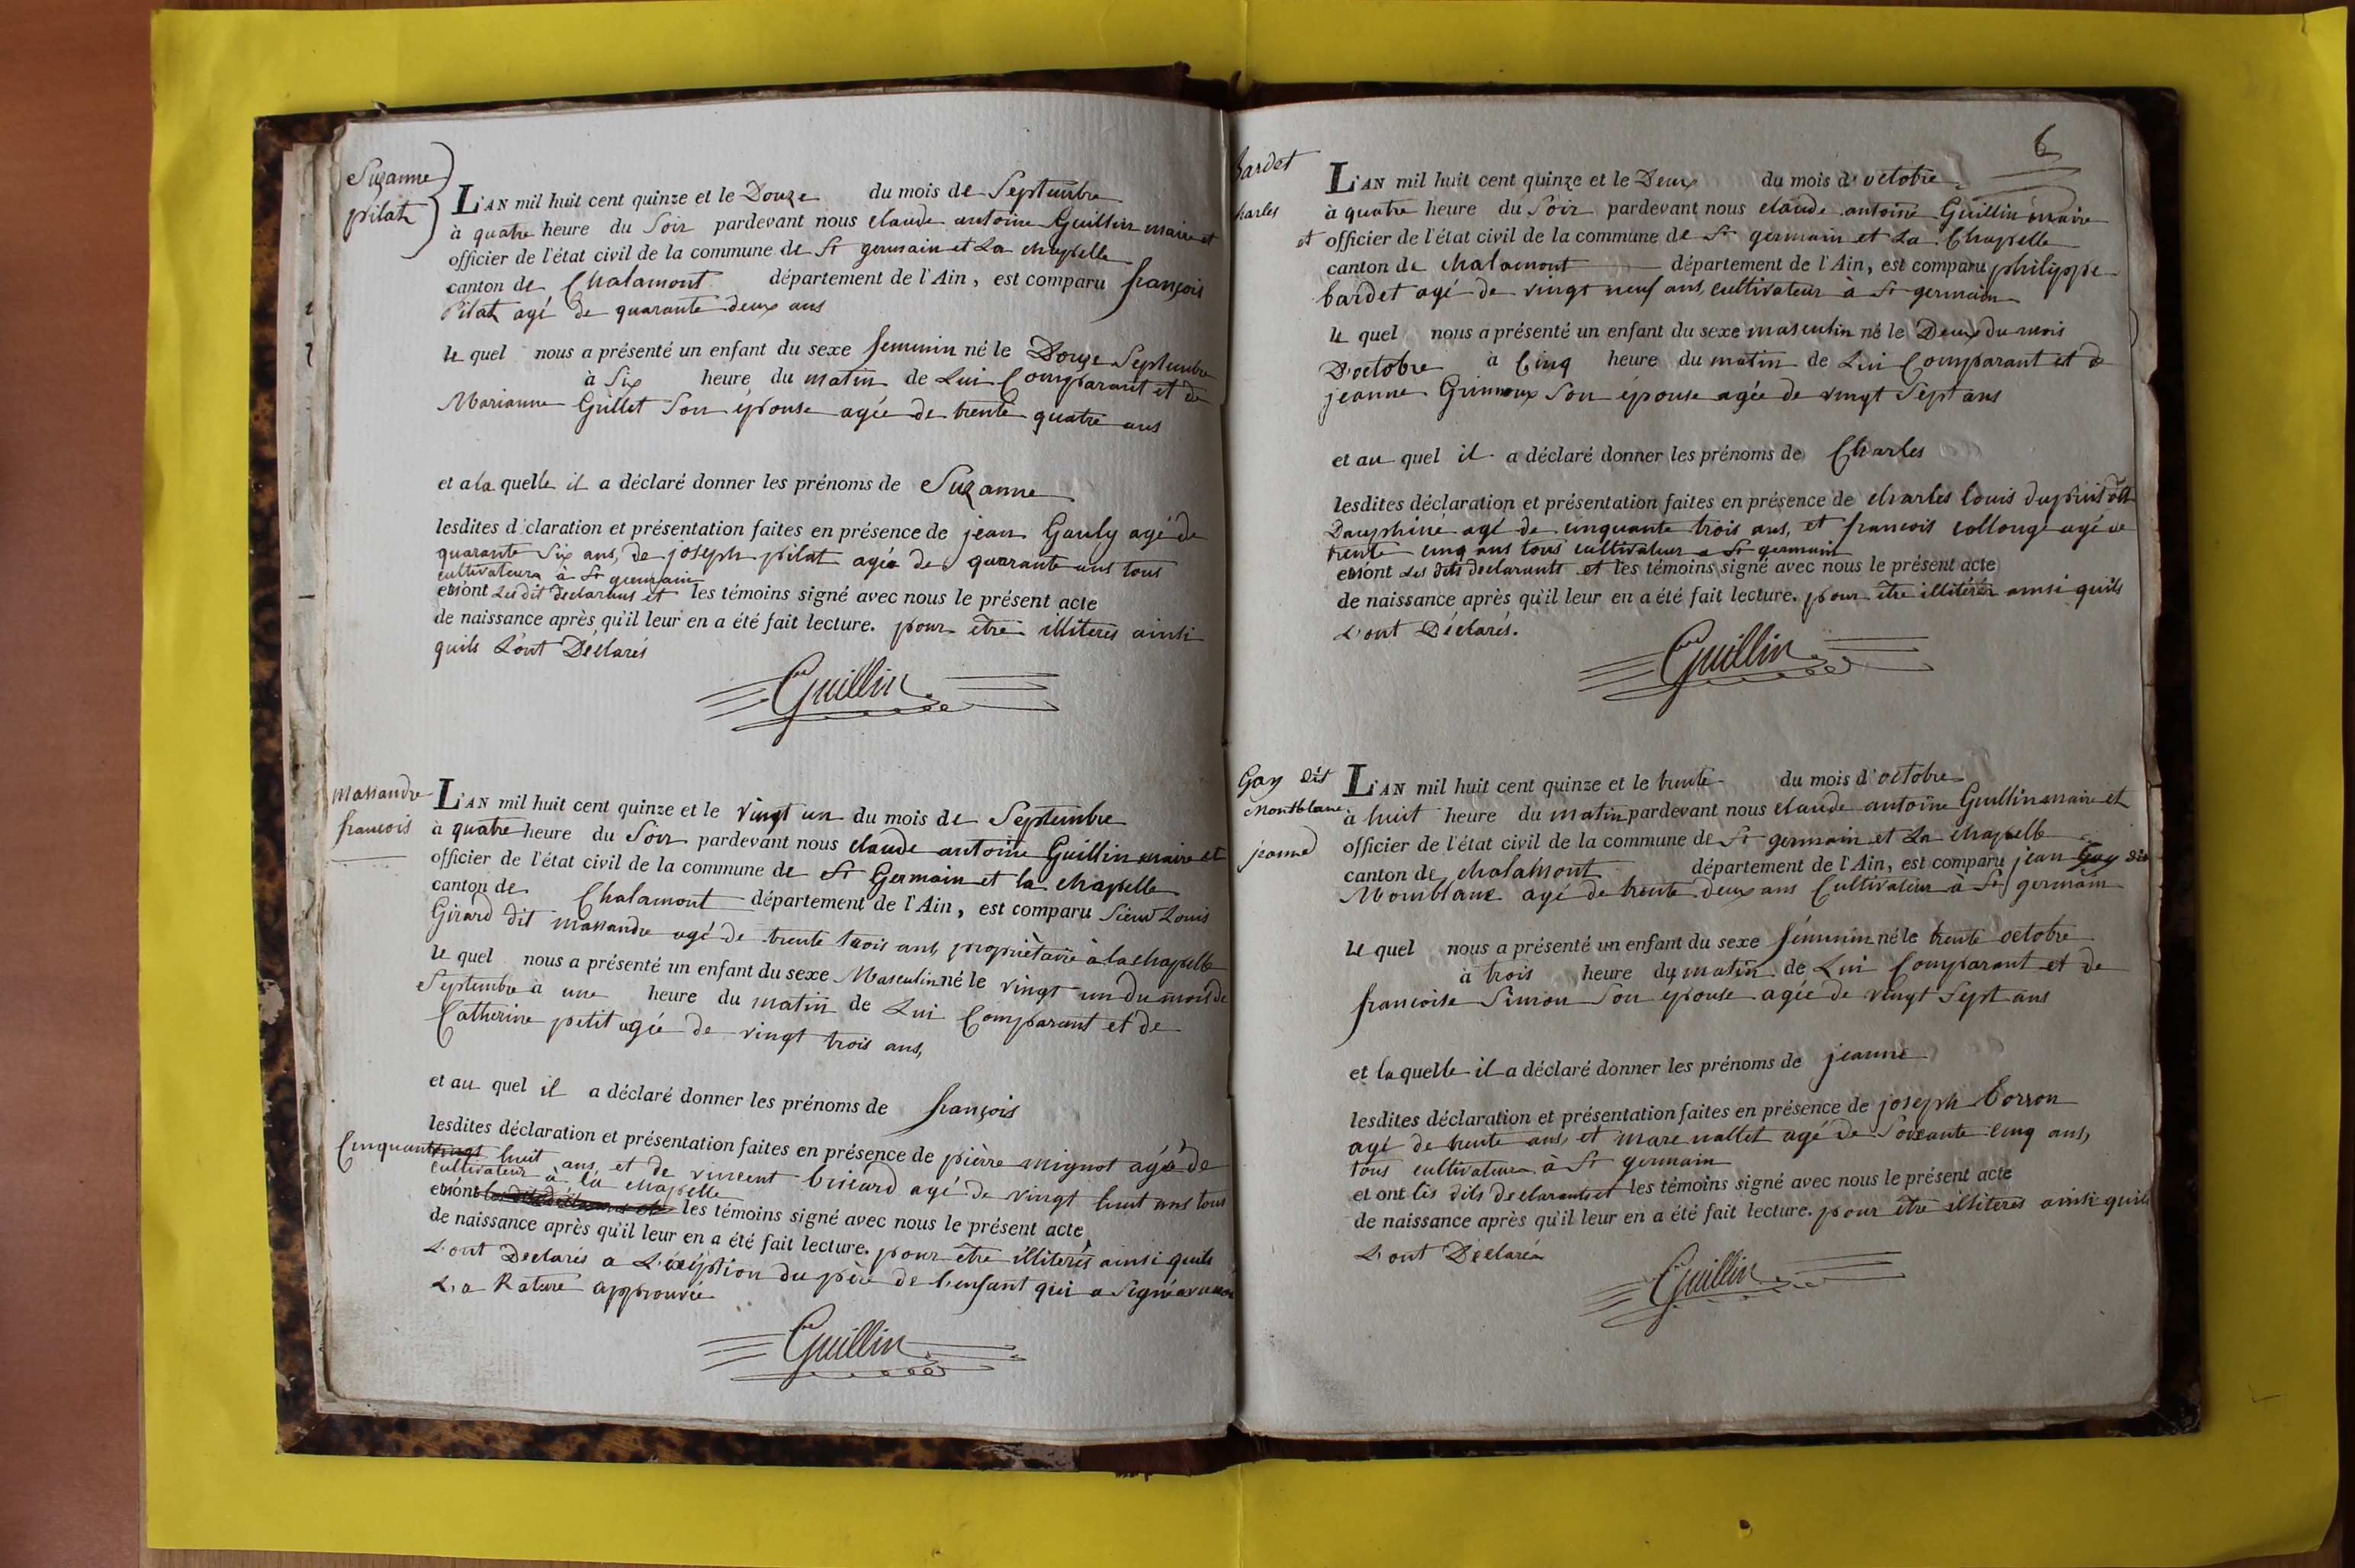 Suzanne
pilat
L'AN mil huit cent quinze et le Douze du mois de Septembre
à quatre heure du Soir pardevant nous claude antoine Guillin maire et
officier de l'état civil de la commune de St germain et La chapelle
canton de Chalamont département de l'Ain, est comparu françois
Pilat agé de quarante deux ans
le quel nous a présenté un enfant du sexe feminin né le Douze Septembre
à Six heure du matin de Lui Comparant et de
Marianne Grillet Son épouse agée de trente quatre ans
et a la quelle il a déclaré donner les prénoms de Suzanne
lesdites déclaration et présentation faites en présence de jean Gauly agé de
quarante Six ans, de joseph pilat agée de quarante ans tous
cultivateurs à St germain
et ont Les dit declarans et les témoins signé avec nous le présent acte
de naissance après qu'il leur en a été fait lecture. pour etre illiteres ainsi
quils L'ont Déclarés
Guillin
Massandre
francois
L'AN mil huit cent quinze et le vingt un du mois de Septembre
à quatre heure du Soir pardevant nous claude antoine Guillin maire et
officier de l'état civil de la commune de St Germain et la chapelle
canton de Chalamont département de l'Ain, est comparu Sieur Louis
Girard dit massandre agé de trente trois ans, propriètaire à la chapelle
le quel nous a présenté un enfant du sexe Masculin né le vingt un du mois de
Septembre à une heure du matin de Lui Comparant et de
Catherine petit agée de vingt trois ans,
et au quel il a déclaré donner les prénoms de françois
lesdites déclaration et présentation faites en présence de pièrre mignot agée de
Cinquante vingt huit ans, et de vincent agé de vingt huit ans tous
cultivateur à la chapelle
et ont les témoins signé avec nous le présent acte
de naissance après qu'il leur en a été fait lecture. pour être illiterés ainsi quils
L'ont Declarés a L'éxéption du père de l'enfant qui a Signé
L. a Rature approuvée
Guillin
6
bardet
Charles
L'AN mil huit cent quinze et le Deux du mois d'octobre
à quatre heure du Soir pardevant nous claude antoine Guillin maire
et officier de l'état civil de la commune de St germain et La Chapelle
canton de chalamont département de l'Ain, est comparu philippe
bardet agé de vingt neuf ans, cultivateur à St germain
le quel nous a présenté un enfant du sexe masculin né le Deux du mois
D'octobre à Cinq heure du matin de Lui Comparant et de
jeanne Grimoux Son épouse agée de vingt Sept ans
et au quel il a déclaré donner les prénoms de Charles
lesdites déclaration et présentation faites en présence de charles louis dupuis dit
Dauphine agé de cinquante trois ans, et francois collonge agé de
trente cinq ans tous cultivateur a St germain
et ont Les dits declarants et les témoins signé avec nous le présent acte
de naissance après qu'il leur en a été fait lecture. pour être illitérés ainsi quils
L'ont Déclarés.
Guillin
Gay dit
Montblanc
jeanne
L'AN mil huit cent quinze et le trente du mois d'octobre
à huit heure du matin pardevant nous claude antoine Guillin maire et
officier de l'état civil de la commune de St germain et La chapelle
canton de chalamont département de l'Ain, est comparu jean Gay dit
Momblanc agé de trente deux ans Cultivateur à St germain
le quel nous a présenté un enfant du sexe féminin né le trente octobre
à trois heure du matin de Lui Comparant et de
francoise Simon Son epouse agée de vingt Sept ans
et la quelle il a déclaré donner les prénoms de jeanne
lesdites déclaration et présentation faites en présence de joseph borron
agé de trente ans, et marc nallet agé de Soixante cinq ans,
tous cultivateurs à St germain
et ont les dits declarants et les témoins signé avec nous le présent acte
de naissance après qu'il leur en a été fait lecture. pour être illiteres ainsi quils
L'ont Déclarés
Guillin